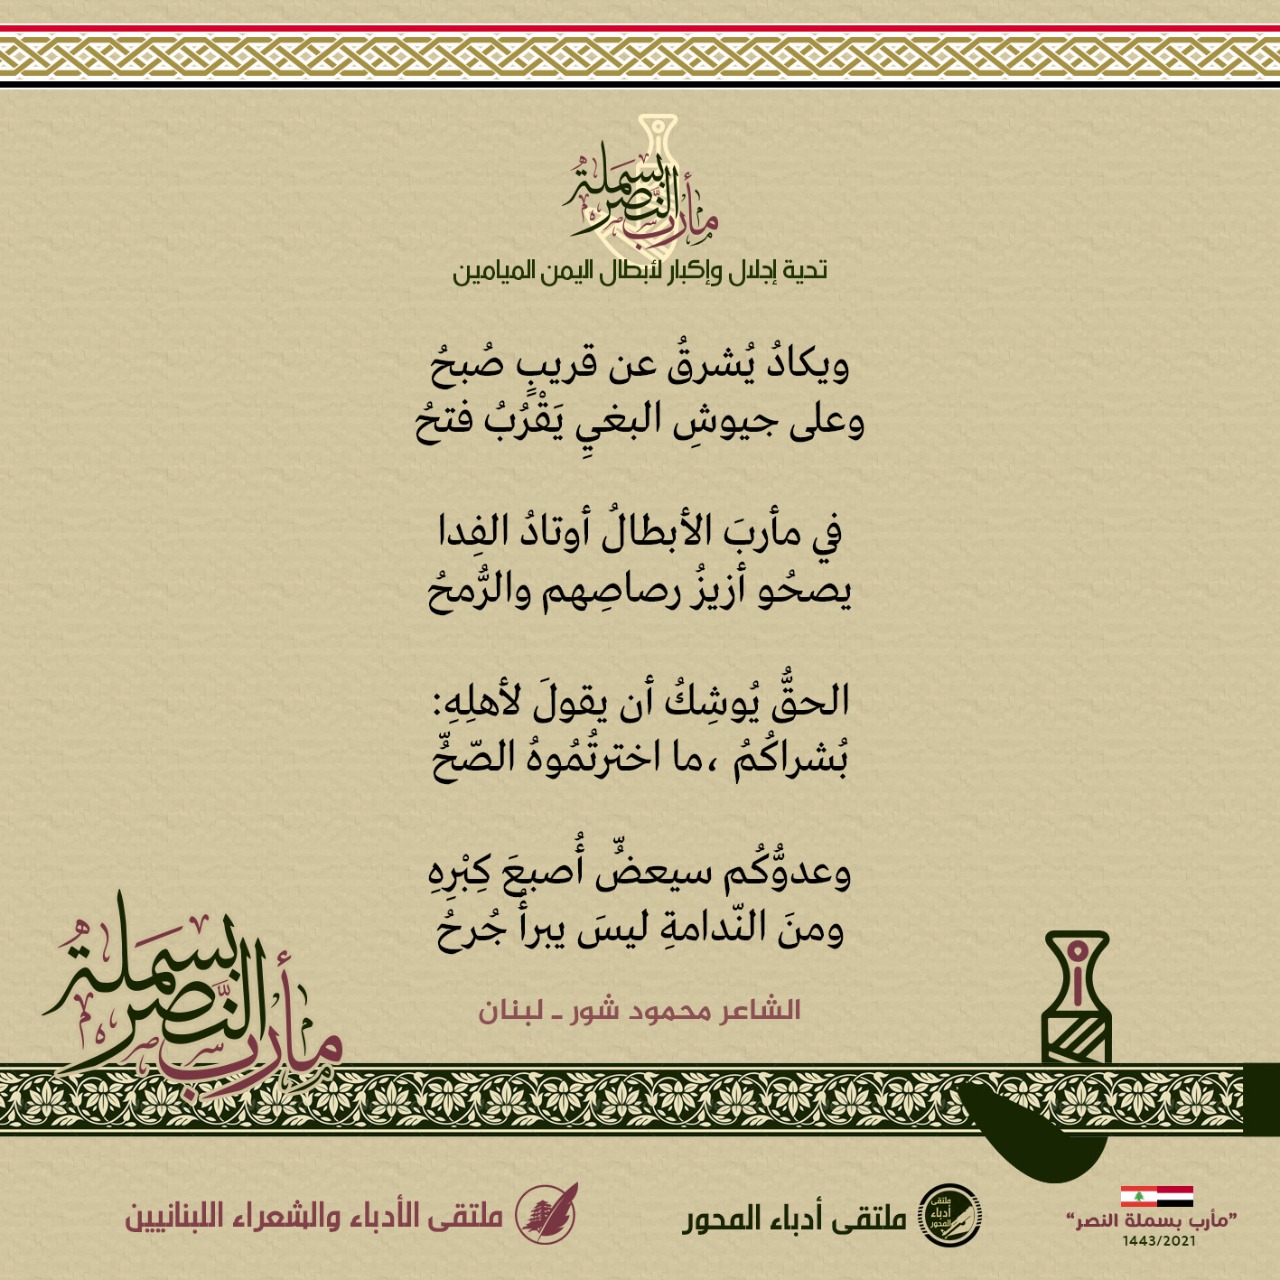 مأرب بسملة النصر
تحية إجلال وإكبار لأبطال اليمن الميامين
ويكادُ يُشرقُ عن قريبٍ صُبحُ
وعلى جيوشِ البغيِ يَقْرُبُ فتحُ
في مأربَ الأبطالُ أوتادُ الفِدا
يصحُو أزيزُ رصاصِهم والرُّمحُ
الحقُّ يُوشِكُ أن يقولَ لأهلِهِ:
بُشراكُمُ ،ما اخترتُمُوهُ الصّحُّ
وعدوُّكُم سيعضُّ أُصبعَ كِبْرِهِ
ومنَ النّدامةِ ليسَ يبرأُ جُرحُ
الشاعر محمود شور ـ لبنان
مأرب بسملة النصر
”مأرب بسملة النصر“
1443/2021
ملتقى أدباء المحور
ملتقى أدباء المحور
ملتقى الأدباء والشعراء اللبنانيين